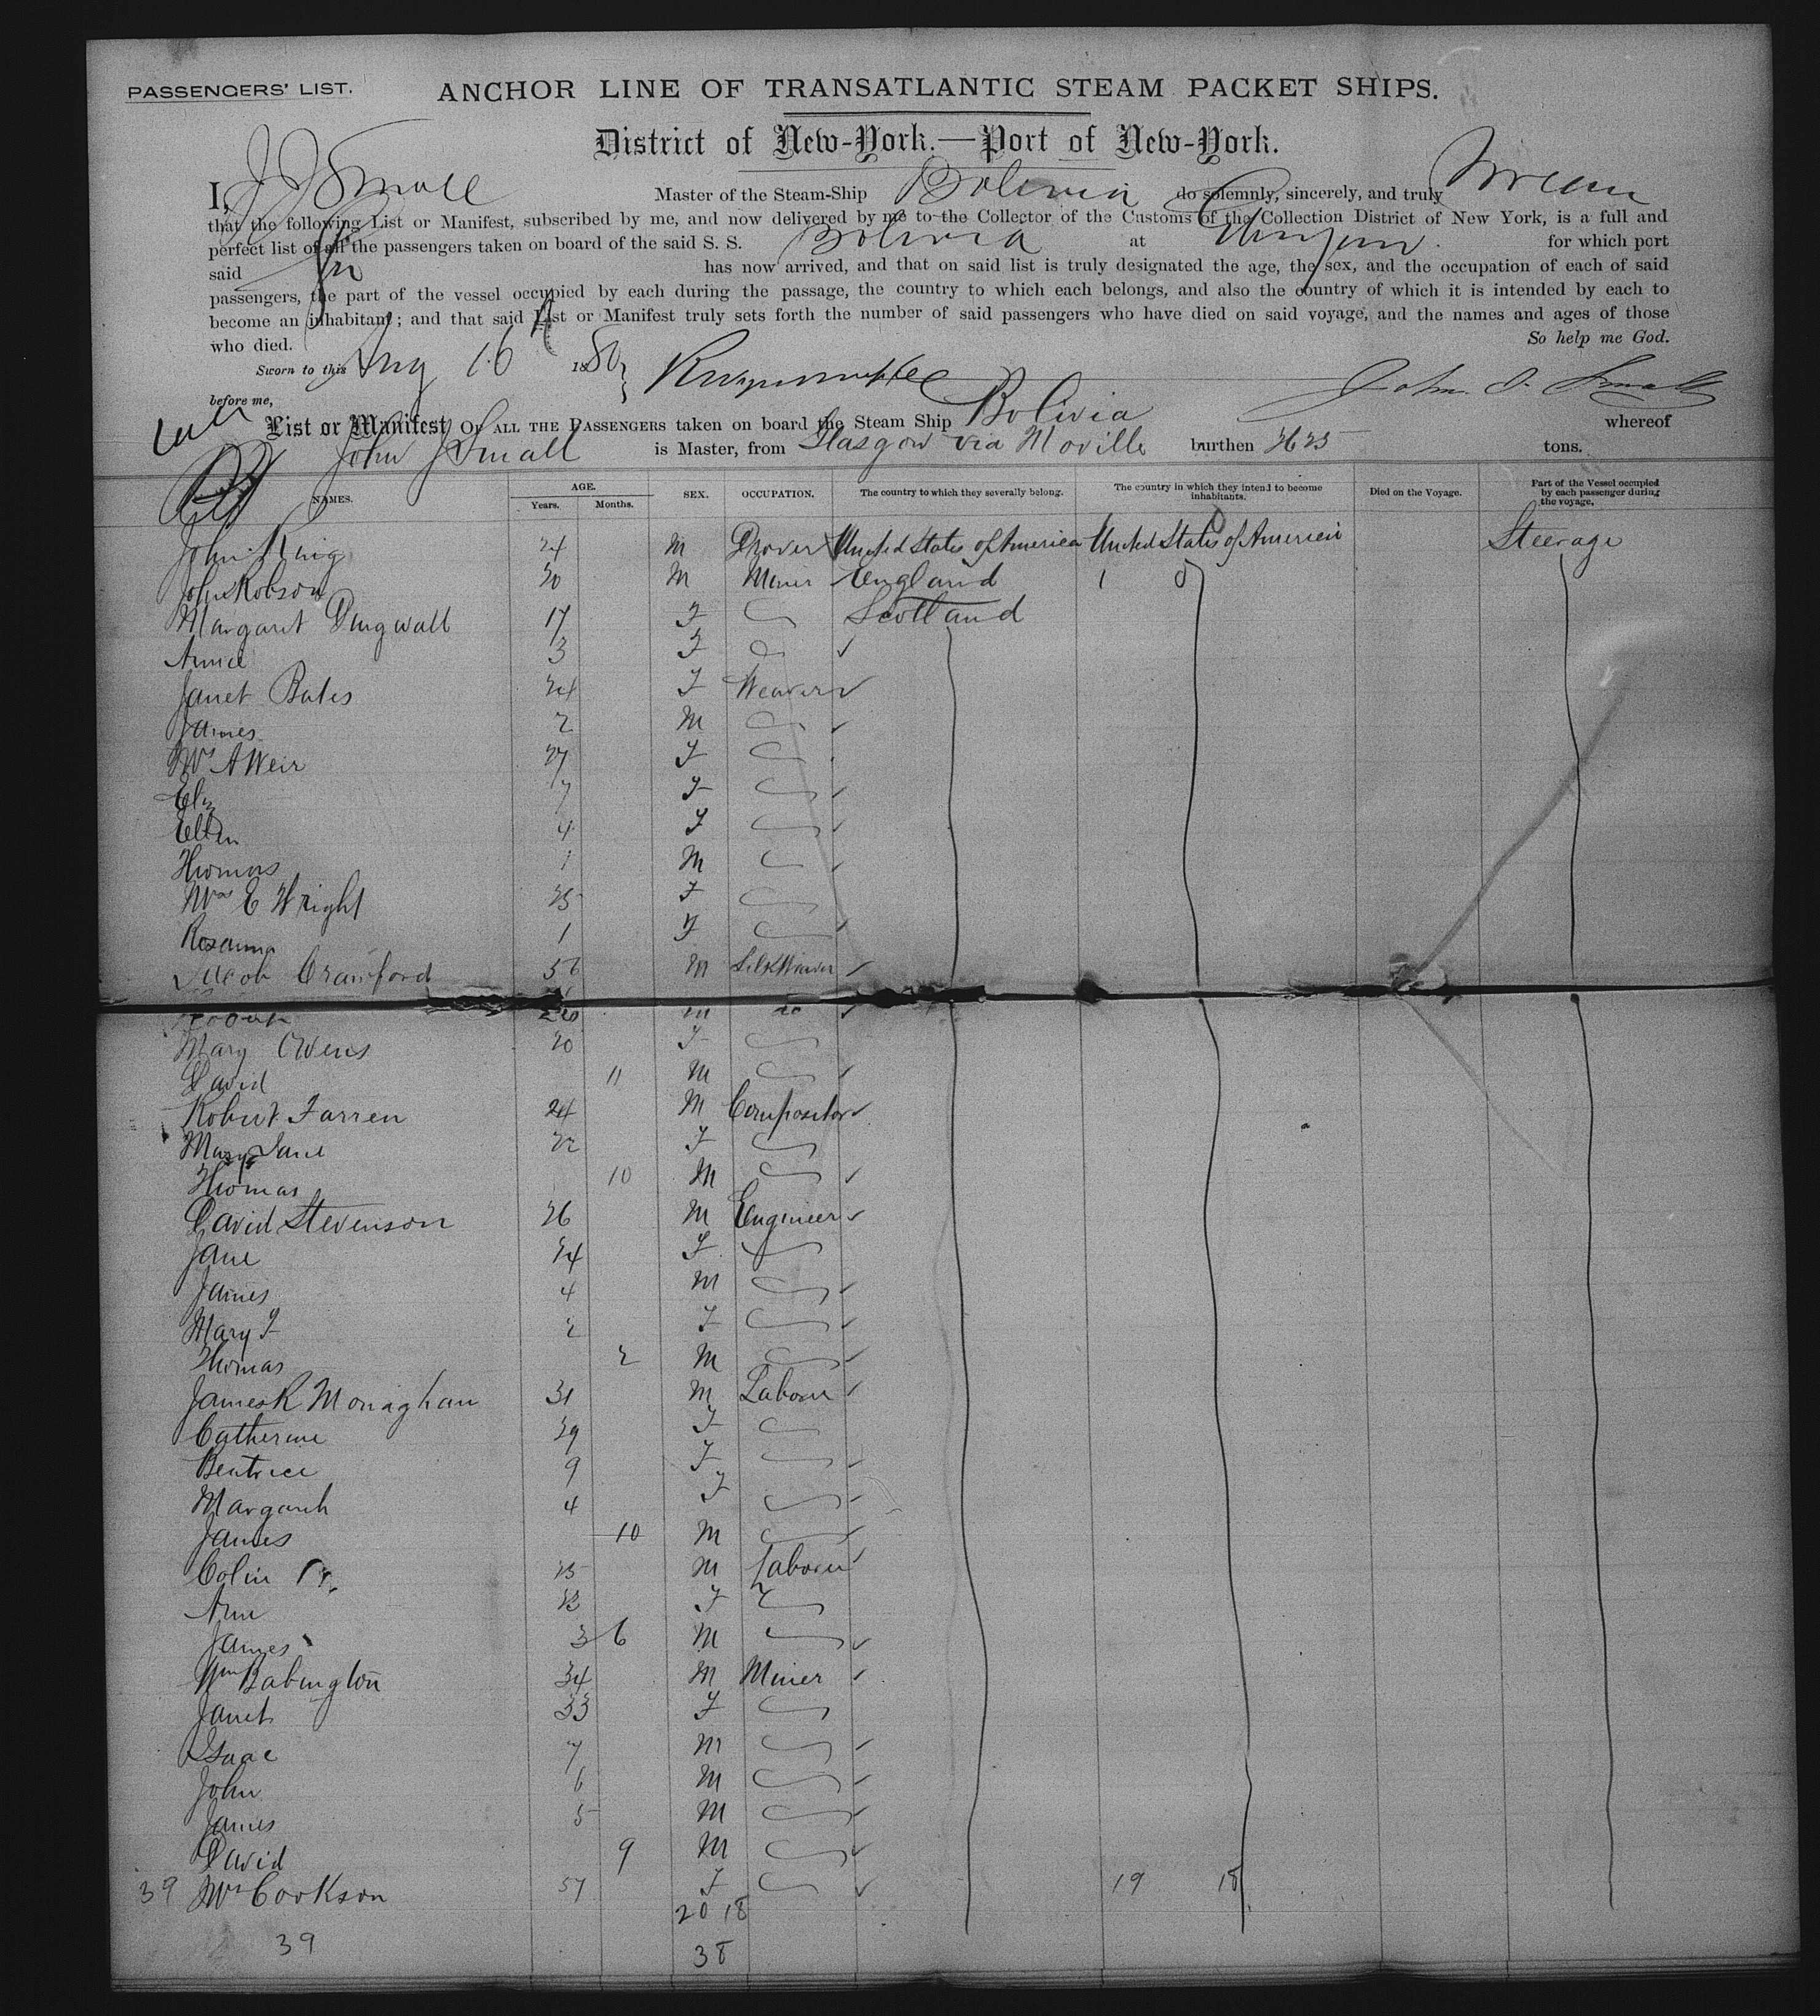 PASSENGERS' LIST.
ANCHOR LINE OF TRANSATLANTIC STEAM PACKET SHIPS.
District of New-York.—Port of New-York.
I, J J Small Master of the Steam-Ship Bolivia do solemnly, sincerely, and truly Swear
that the following List or Manifest, subscribed by me, and now delivered by me to the Collector of the Customs of the Collection District of New York, is a full and
perfect list of all the passengers taken on board of the said S. S. Bolivia at Glasgow. for which port
said has now arrived, and that on said list is truly designated the age, the sex, and the occupation of each of said
passengers, the part of the vessel occupied by each during the passage, the country to which each belongs, and also the country of which it is intended by each to
become an inhabitant; and that said List or Manifest truly sets forth the number of said passengers who have died on said voyage, and the names and ages of those
who died. So help me God.
Sworn to this Aug 16th 1880
before me,
List or Manifest OF ALL THE PASSENGERS taken on board the Steam Ship Bolivia whereof
John J Small is Master, from Glasgow via Moville burthen 2625 tons.
NAMES. AGE. Years. Months. SEX. OCCUPATION. The country to which they severally belong. The country in which they intend to become inhabitants. Died on the Voyage. Part of the Vessel occupied by each passenger during the voyage.
John King 24 M Drover United States of America United States of America Steerage
John Robson 20 M Miner England 1 0
Margaret Dingwall 17 F Scotland
Annie 3 F
Janet Bates 24 F Weaver
James 2 M
Mrs A Weir 27 F
Eliz 7 F
Ellen 4 F
Thomas 1 M
Mrs E Wright 25 F
Rosanna 1 F
Jacob Crawford 56 M Silk Weaver
Robert 20 M do
Mary Owens 20 F
David 11 M
Robert Farren 24 M Compositor
Mary Jane 22 F
Thomas 10 M
David Stevenson 26 M Engineer
Jane 24 F
James 4 M
Mary F 2 F
Thomas 2 M
James R Monaghan 31 M Laborer
Catherine 29 F
Beatrice 9 F
Margaret 4 F
James 10 M
Colin 25 M Laborer
Ann 23 F
James 3 6 M
Wm Babington 34 M Miner
Janet 33 F
Isaac 7 M
John 6 M
James 5 M
David 9 M
39 Mrs Cookson 57 F 19 18
20 18
39 38